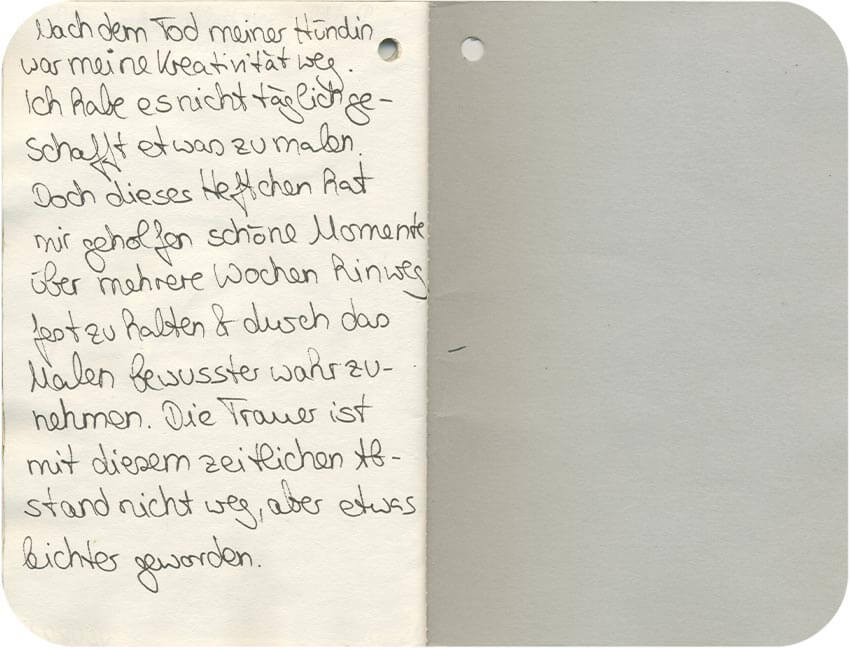 Nach dem Tod meiner Hündin
war meine Kreativität weg.
Ich habe es nicht täglich ge-
schafft etwas zu malen.
Doch dieses Heftchen hat
mir geholfen schöne Momente
über mehrere Wochen hinweg
fest zu halten & durch das
Malen bewusster wahr zu-
nehmen. Die Trauer ist
mit diesem zeitlichen Ab-
stand nicht weg, aber etwas
leichter geworden.